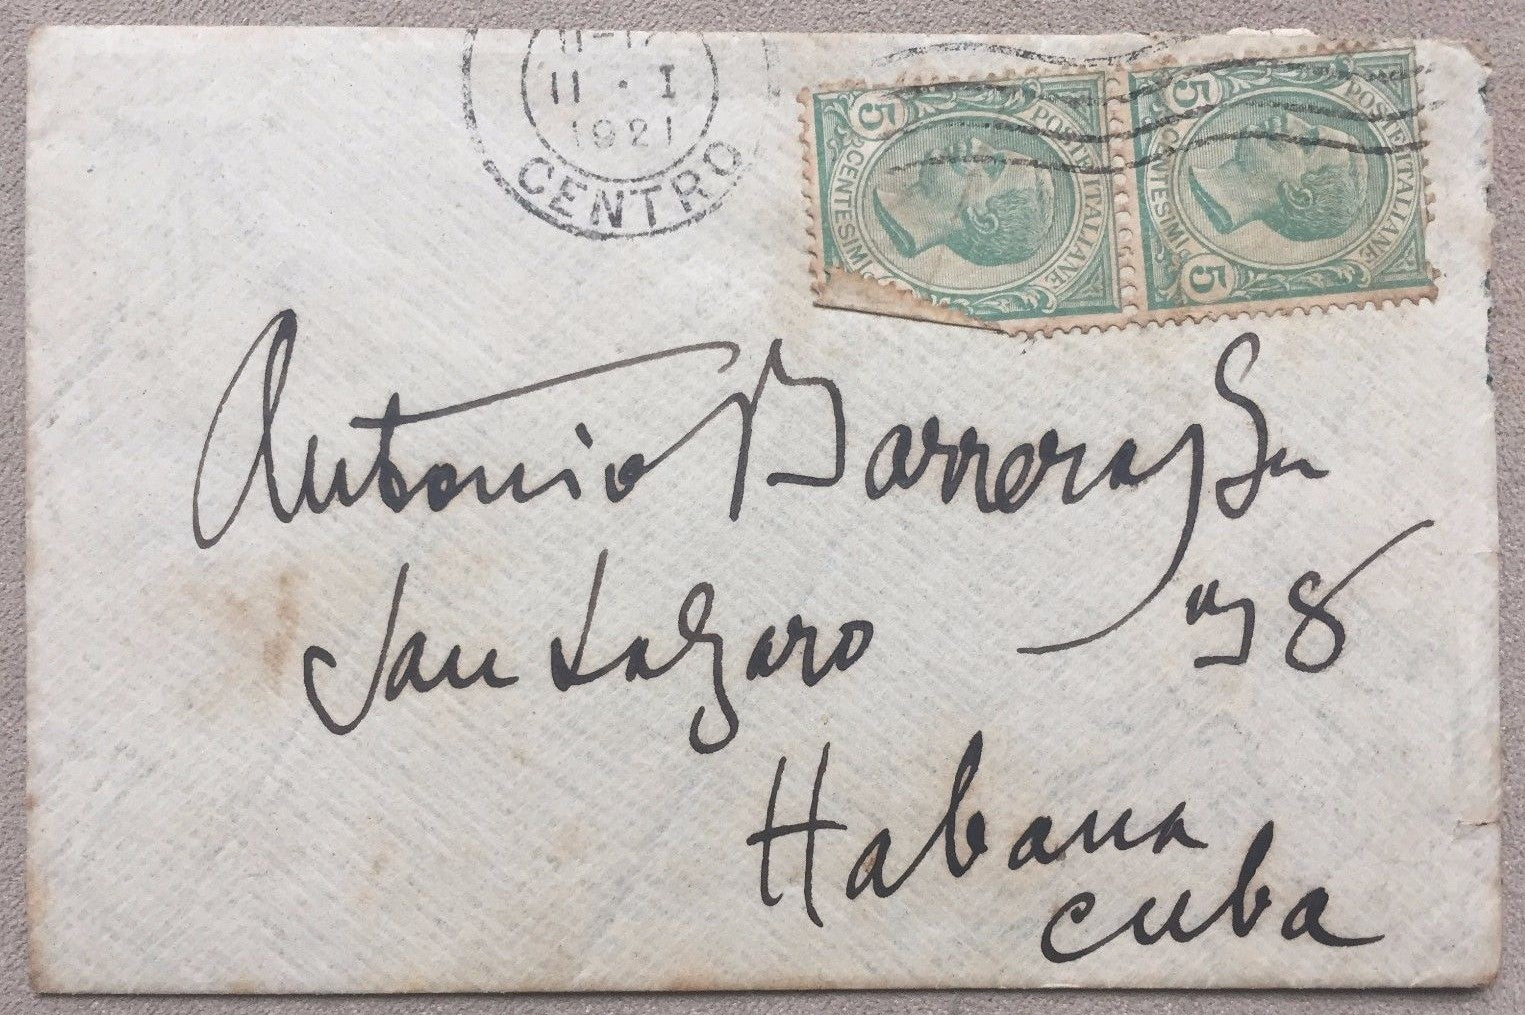 11-12
11 · I
1921
CENTRO
5 5
CENTESIMI
POSTE ITALIANE
5 5
CENTESIMI
POSTE ITALIANE
Antonio Barreras Sr
San Lazaro 98
Habana
Cuba